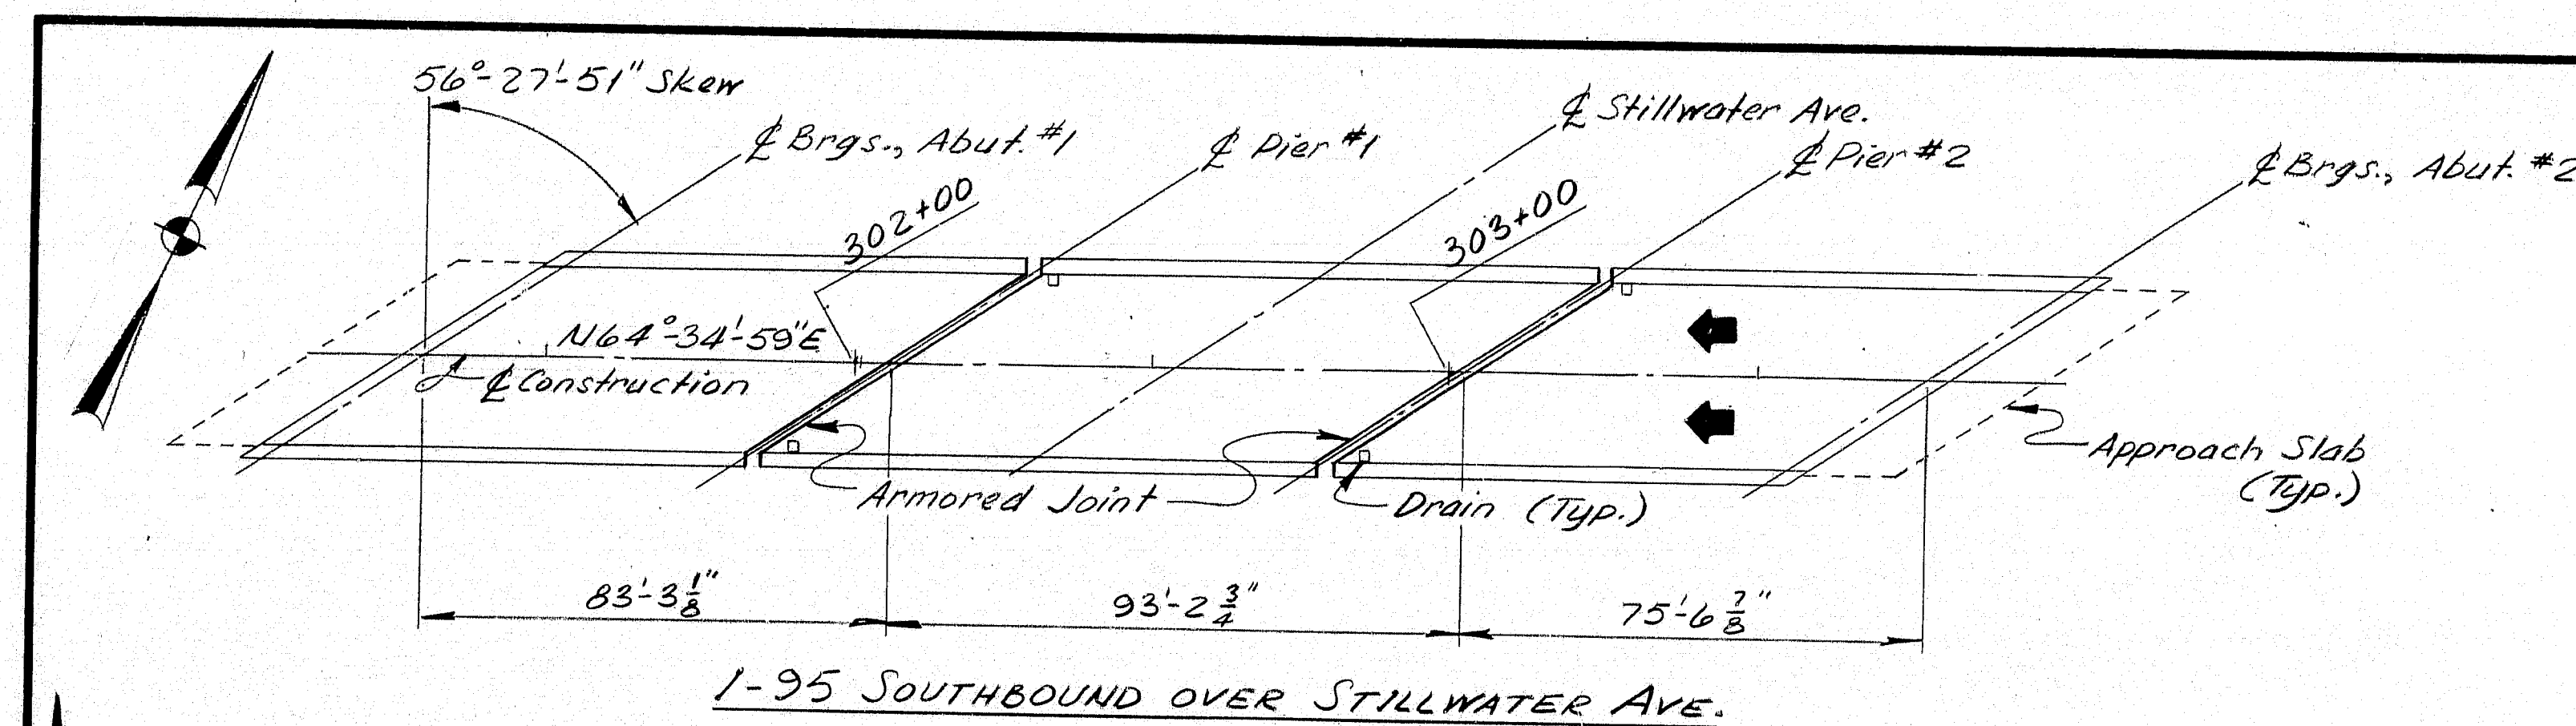 56°-27'-51" Skew
℄ Brgs., Abut. #1
℄ Pier #1
℄ Stillwater Ave.
℄ Pier #2
℄ Brgs., Abut. #2
302+00
303+00
N64°-34'-59"E
℄ Construction
Armored Joint
Drain (Typ.)
Approach Slab
(Typ.)
83'-3 1/8"
93'-2 3/4"
75'-6 7/8"
I-95 SOUTHBOUND OVER STILLWATER AVE.